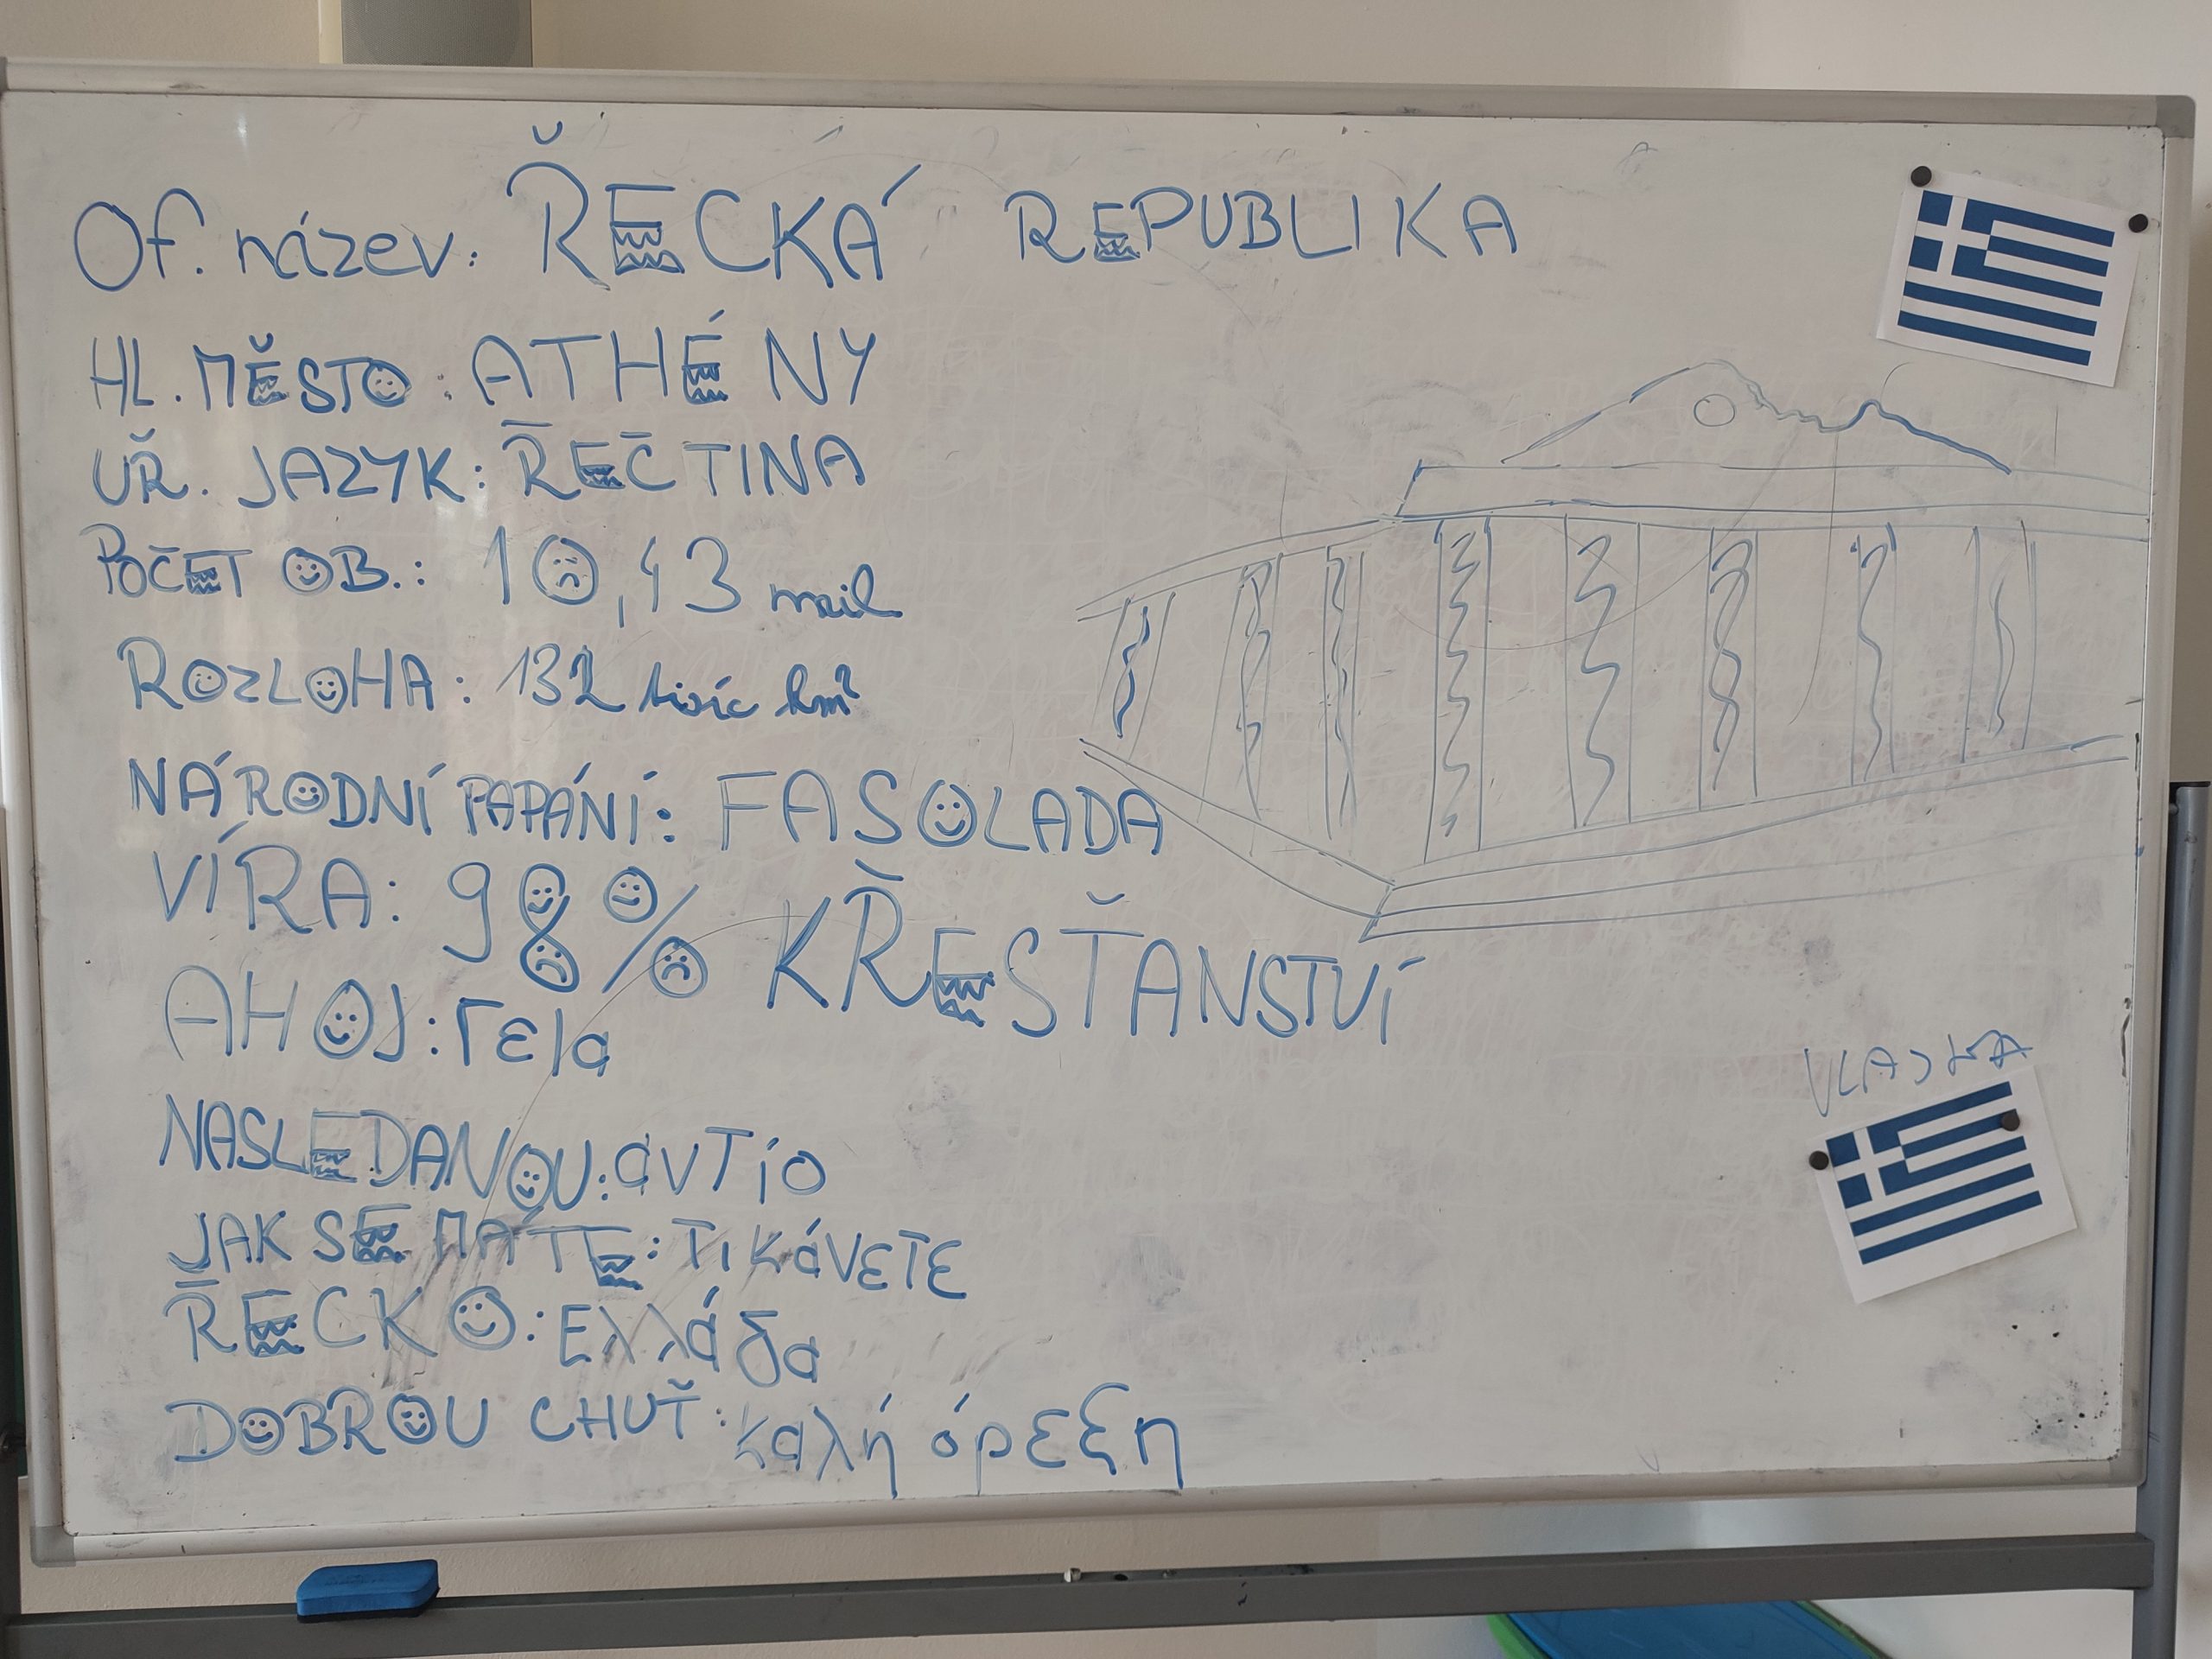 Of. název: ŘECKÁ REPUBLIKA
HL. MĚSTO: ATHÉNY
ÚŘ. JAZYK: ŘEČTINA
POČET OB.: 10,43 mil
ROZLOHA: 132 tisíc km²
NÁRODNÍ PAPÁNÍ: FASOLADA
VÍRA: 98% KŘESŤANSTVÍ
AHOJ: Γεια
NASLEDANOU: αντίο
JAK SE MÁTE: Τι κάνετε
ŘECKO: Ελλάδα
DOBROU CHUŤ: καλή όρεξη
VLAJKA